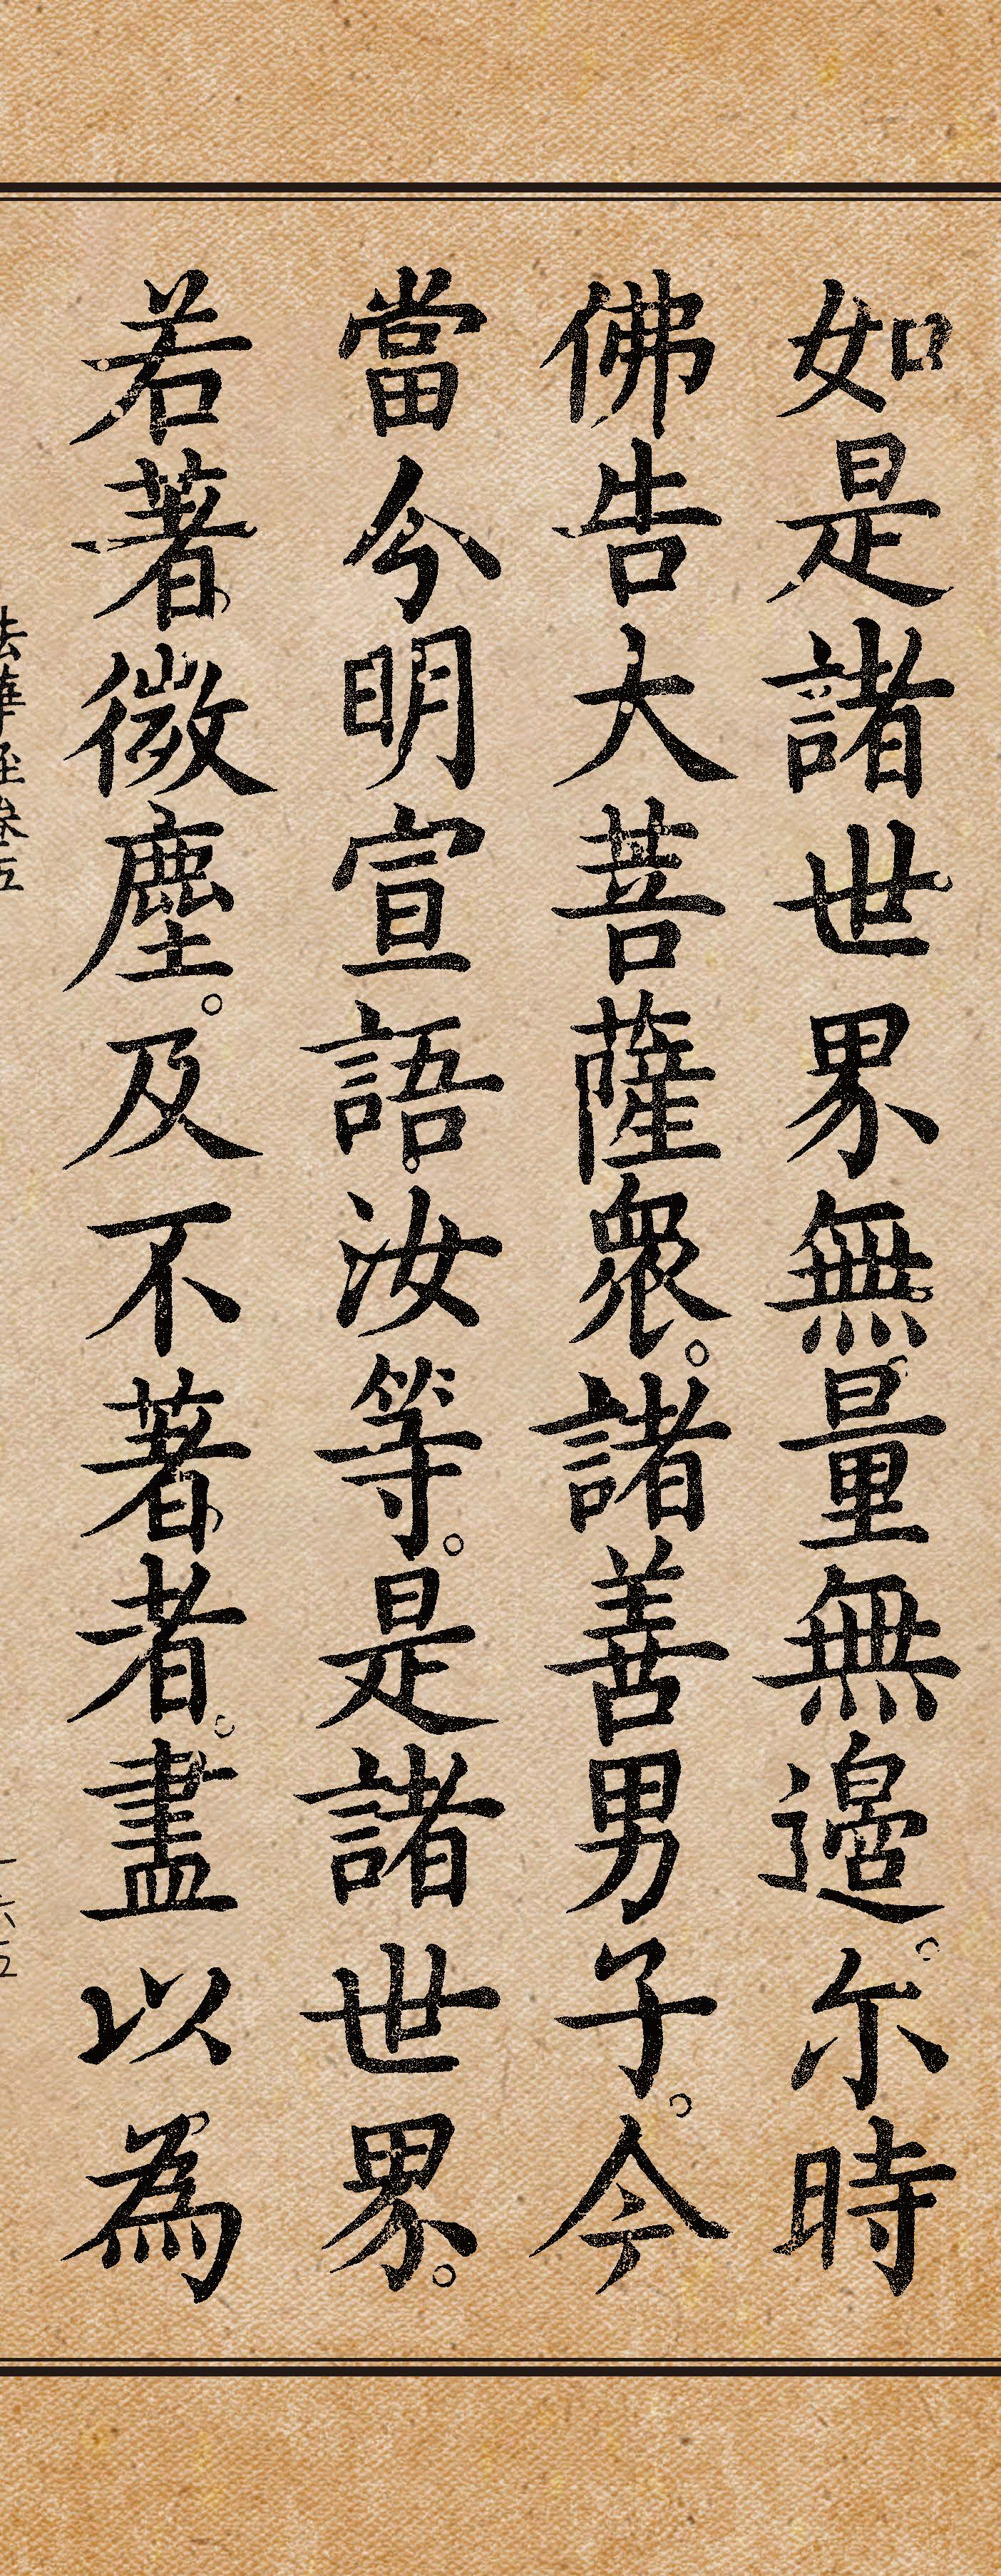 如是諸世界無量無邊。尔時
佛告大菩薩衆。諸善男子。今
當今明宣語。汝等。是諸世界。
若著微塵。及不著者。盡以為
法華經卷五
一六五